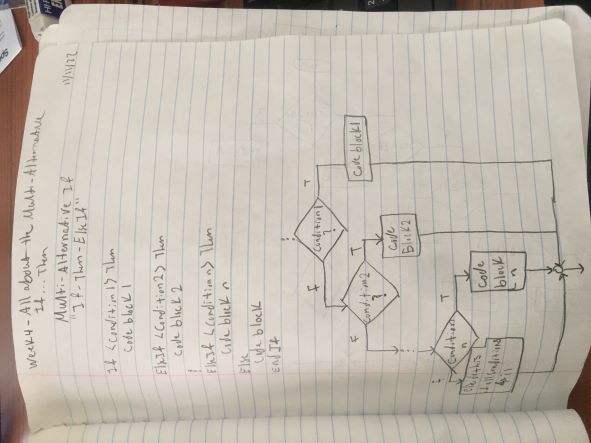 Week 4 - All about the Multi-Alternative
If... Then
Multi-Alternative If
"If-Then-ElseIf"
If <Condition 1> Then
Code block 1
ElseIf <Condition 2> Then
Code block 2
ElseIf <Condition n> Then
Code block n
Else
Code block
End If
F
Condition 1
?
T
F
Condition 2
?
T
Code block 1
Code
Block 2
F
Condition
n
T
if all conditions
Code
block
n